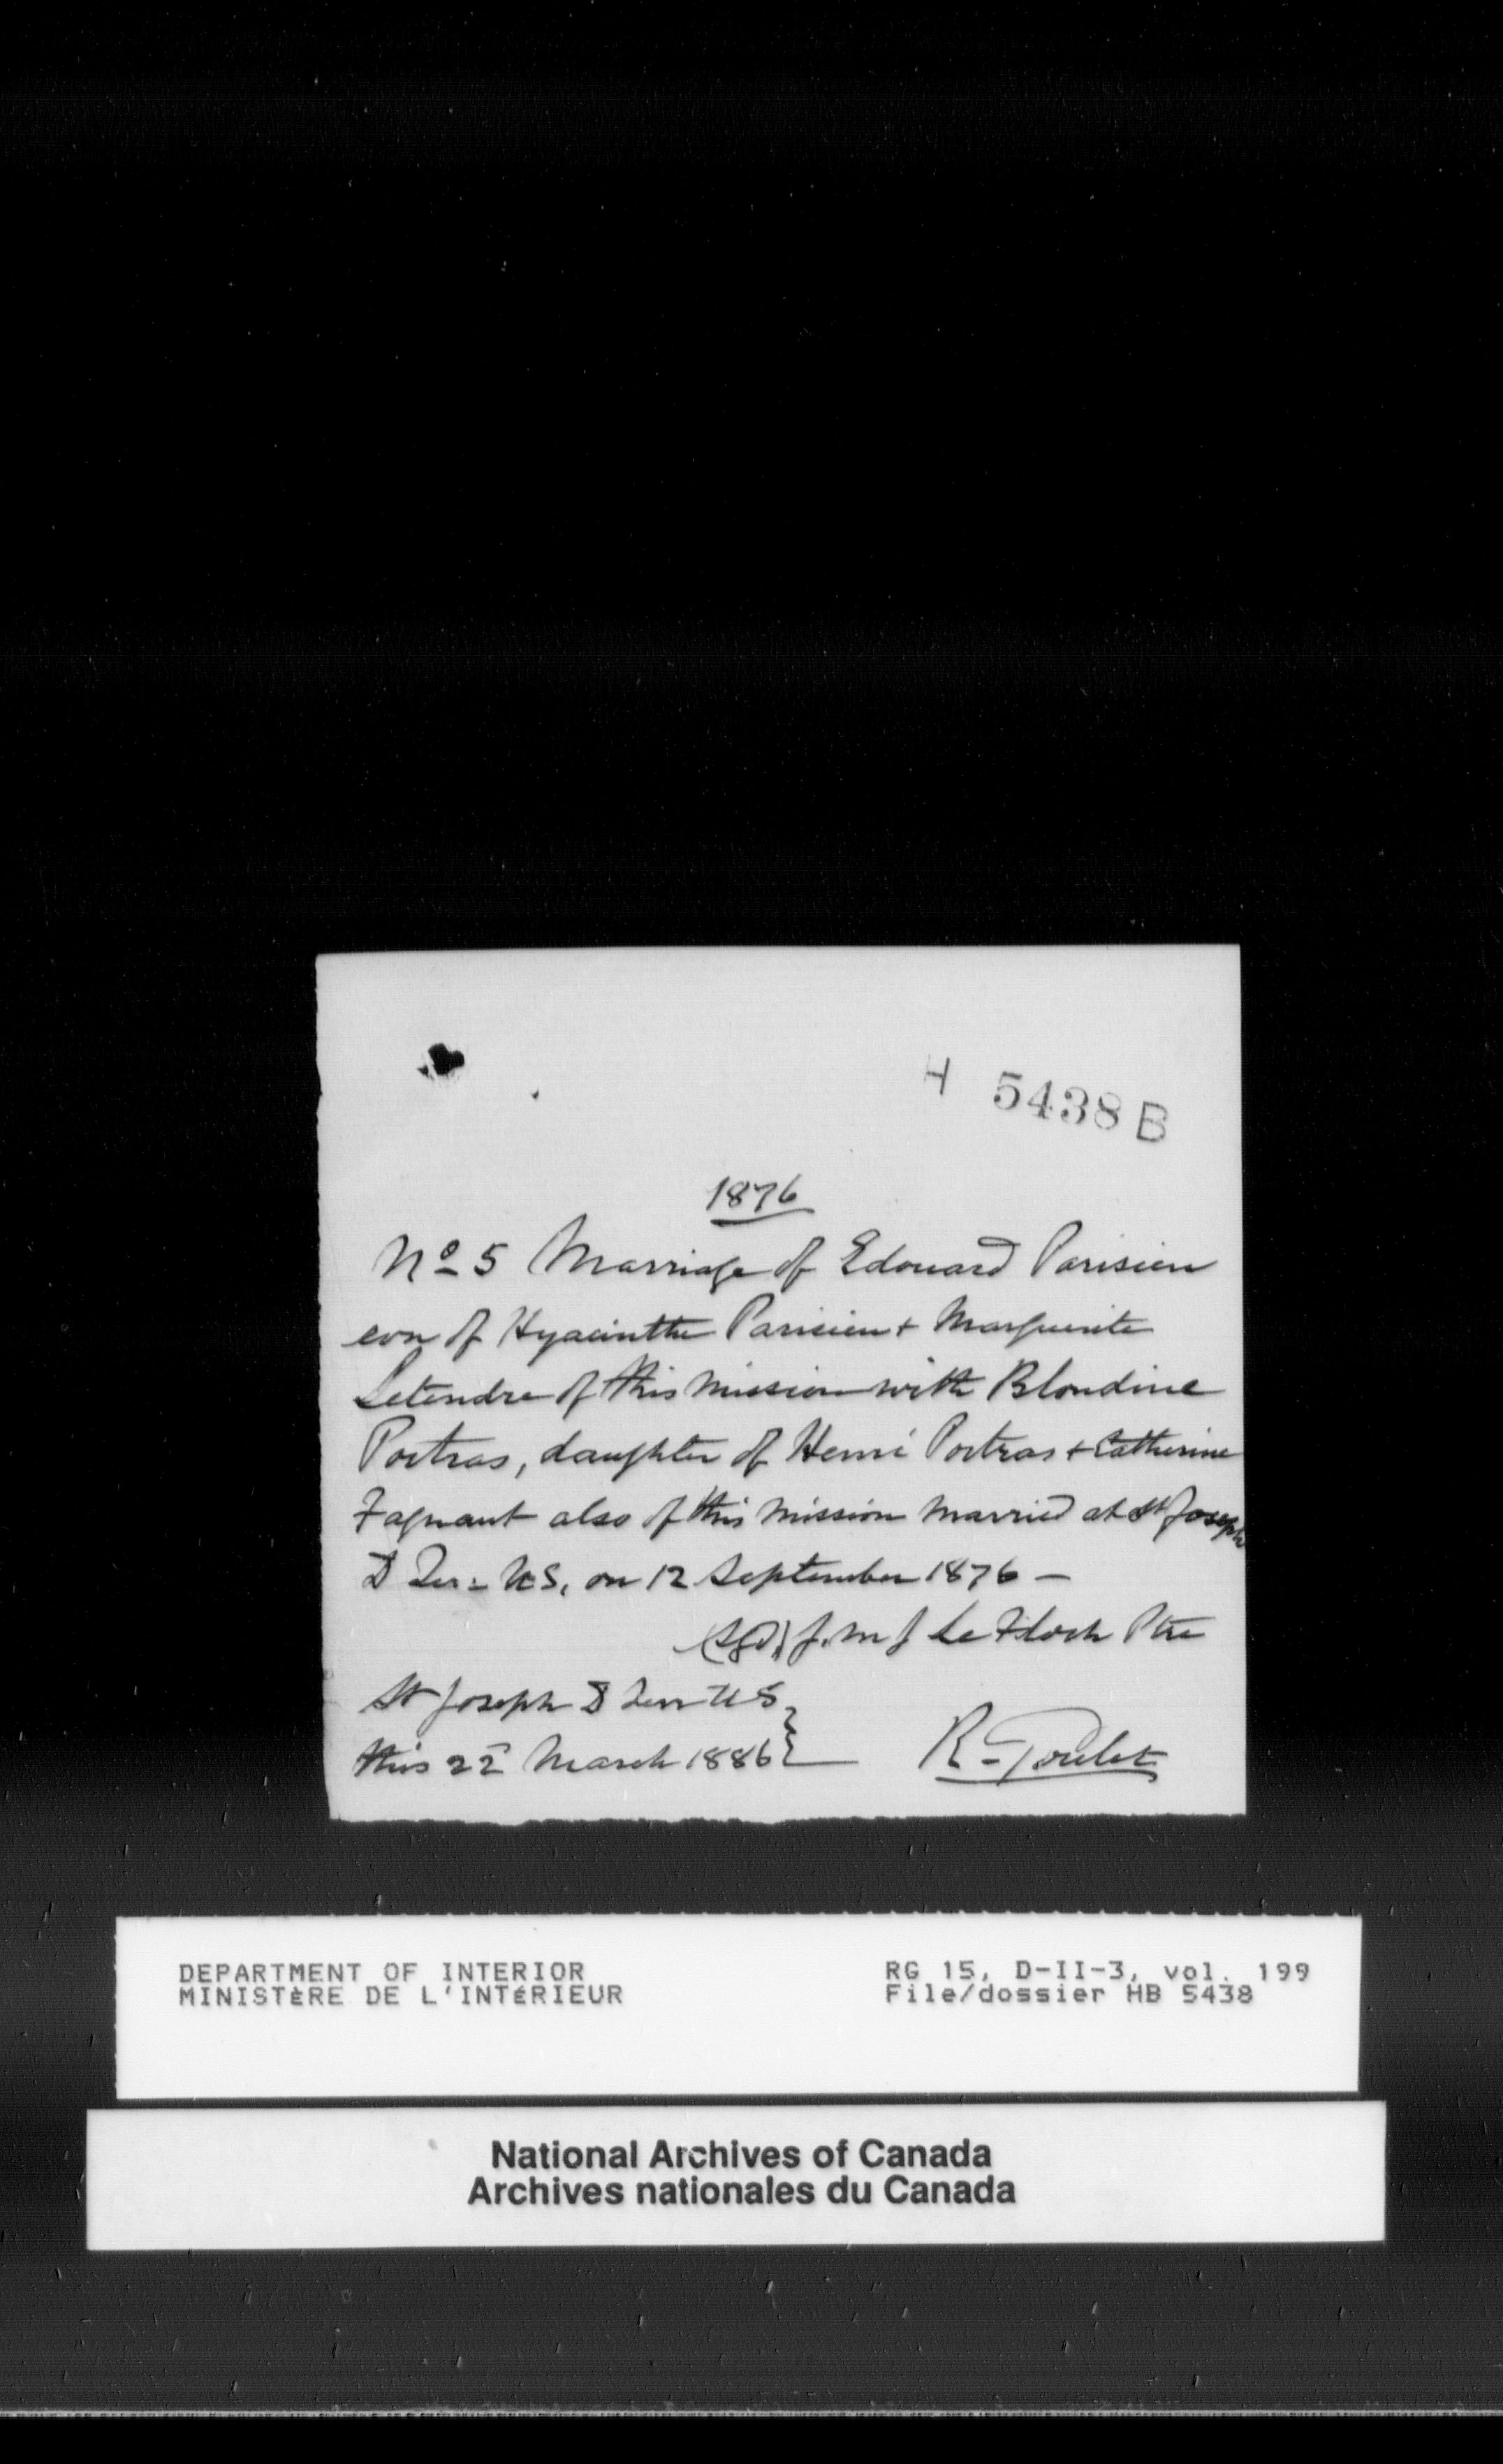 H 5438 B
1876
No 5 Marriage of Edouard Parisien
son of Hyacinthe Parisien + Marguerite
Letendre of this mission with Blondine
Poitras, daughter of Henri Poitras + Catherine
Fagnant also of this mission married at St Joseph
D Ter = US, on 12 September 1876 -
(Sgd) J. M J Le Floch Ptre
St Joseph D Terr US
this 22 March 1886
DEPARTMENT OF INTERIOR
MINISTÈRE DE L'INTÉRIEUR
RG 15, D-II-3, vol. 199
File/dossier HB 5438
National Archives of Canada
Archives nationales du Canada